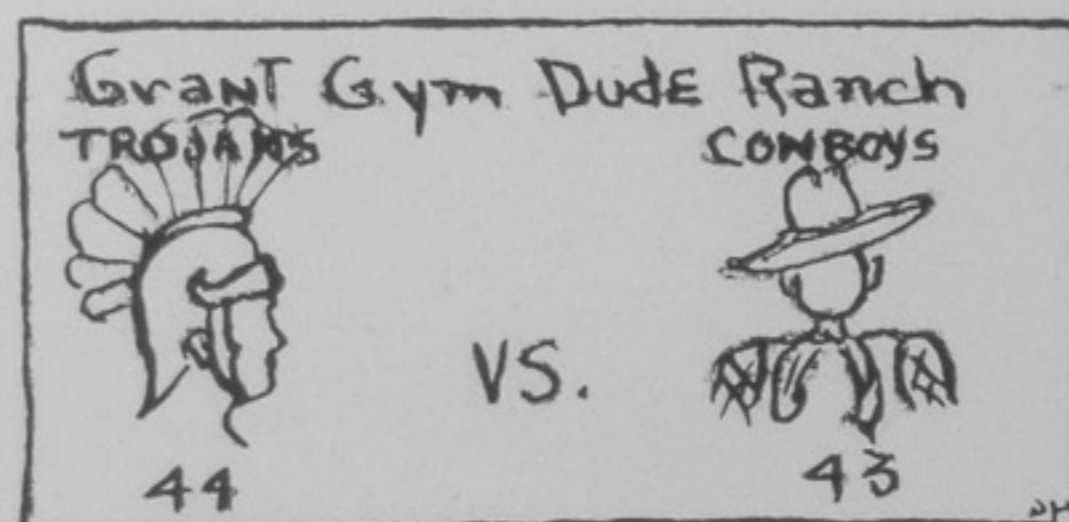 Grant Gym Dude Ranch
TROJANS COWBOYS
VS.
44 43